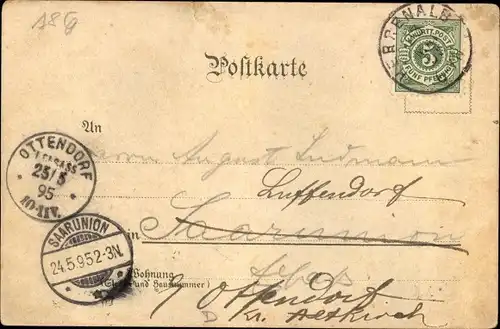 18 G
HERRENALB
K. WÜRTT. POST
5
FÜNF PFENNIG
Postkarte
An
Herrn August Ludmann
OTTENDORF
(ELSASS
23/5
95
10-11V.
Luffendorf
in Saarunion
SAARUNION
24.5.95.2-3N.
Wohnung
(Straße und Hausnummer)
Ottendorf
Altkirch